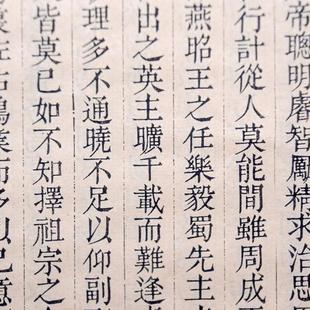 帝聰明睿智勵精求治思
行計從人莫能間雖周成
燕昭王之任樂毅蜀先主
出之英主曠千載而難逢
理多不通曉不足以仰副
皆莫已如不知擇祖宗之
業而多以己意